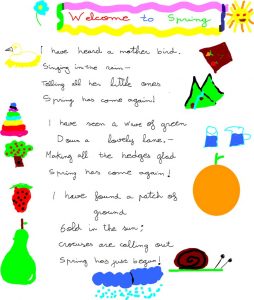 Welcome to Spring
I have heard a mother bird.
Singing in the rain -
Telling all her little ones
Spring has come again!
I have seen a wave of green
Down a lovely lane, -
Making all the hedges glad
Spring has come again!
I have found a patch of
ground
Gold in the sun;
Crocuses are calling out
Spring has just begun!